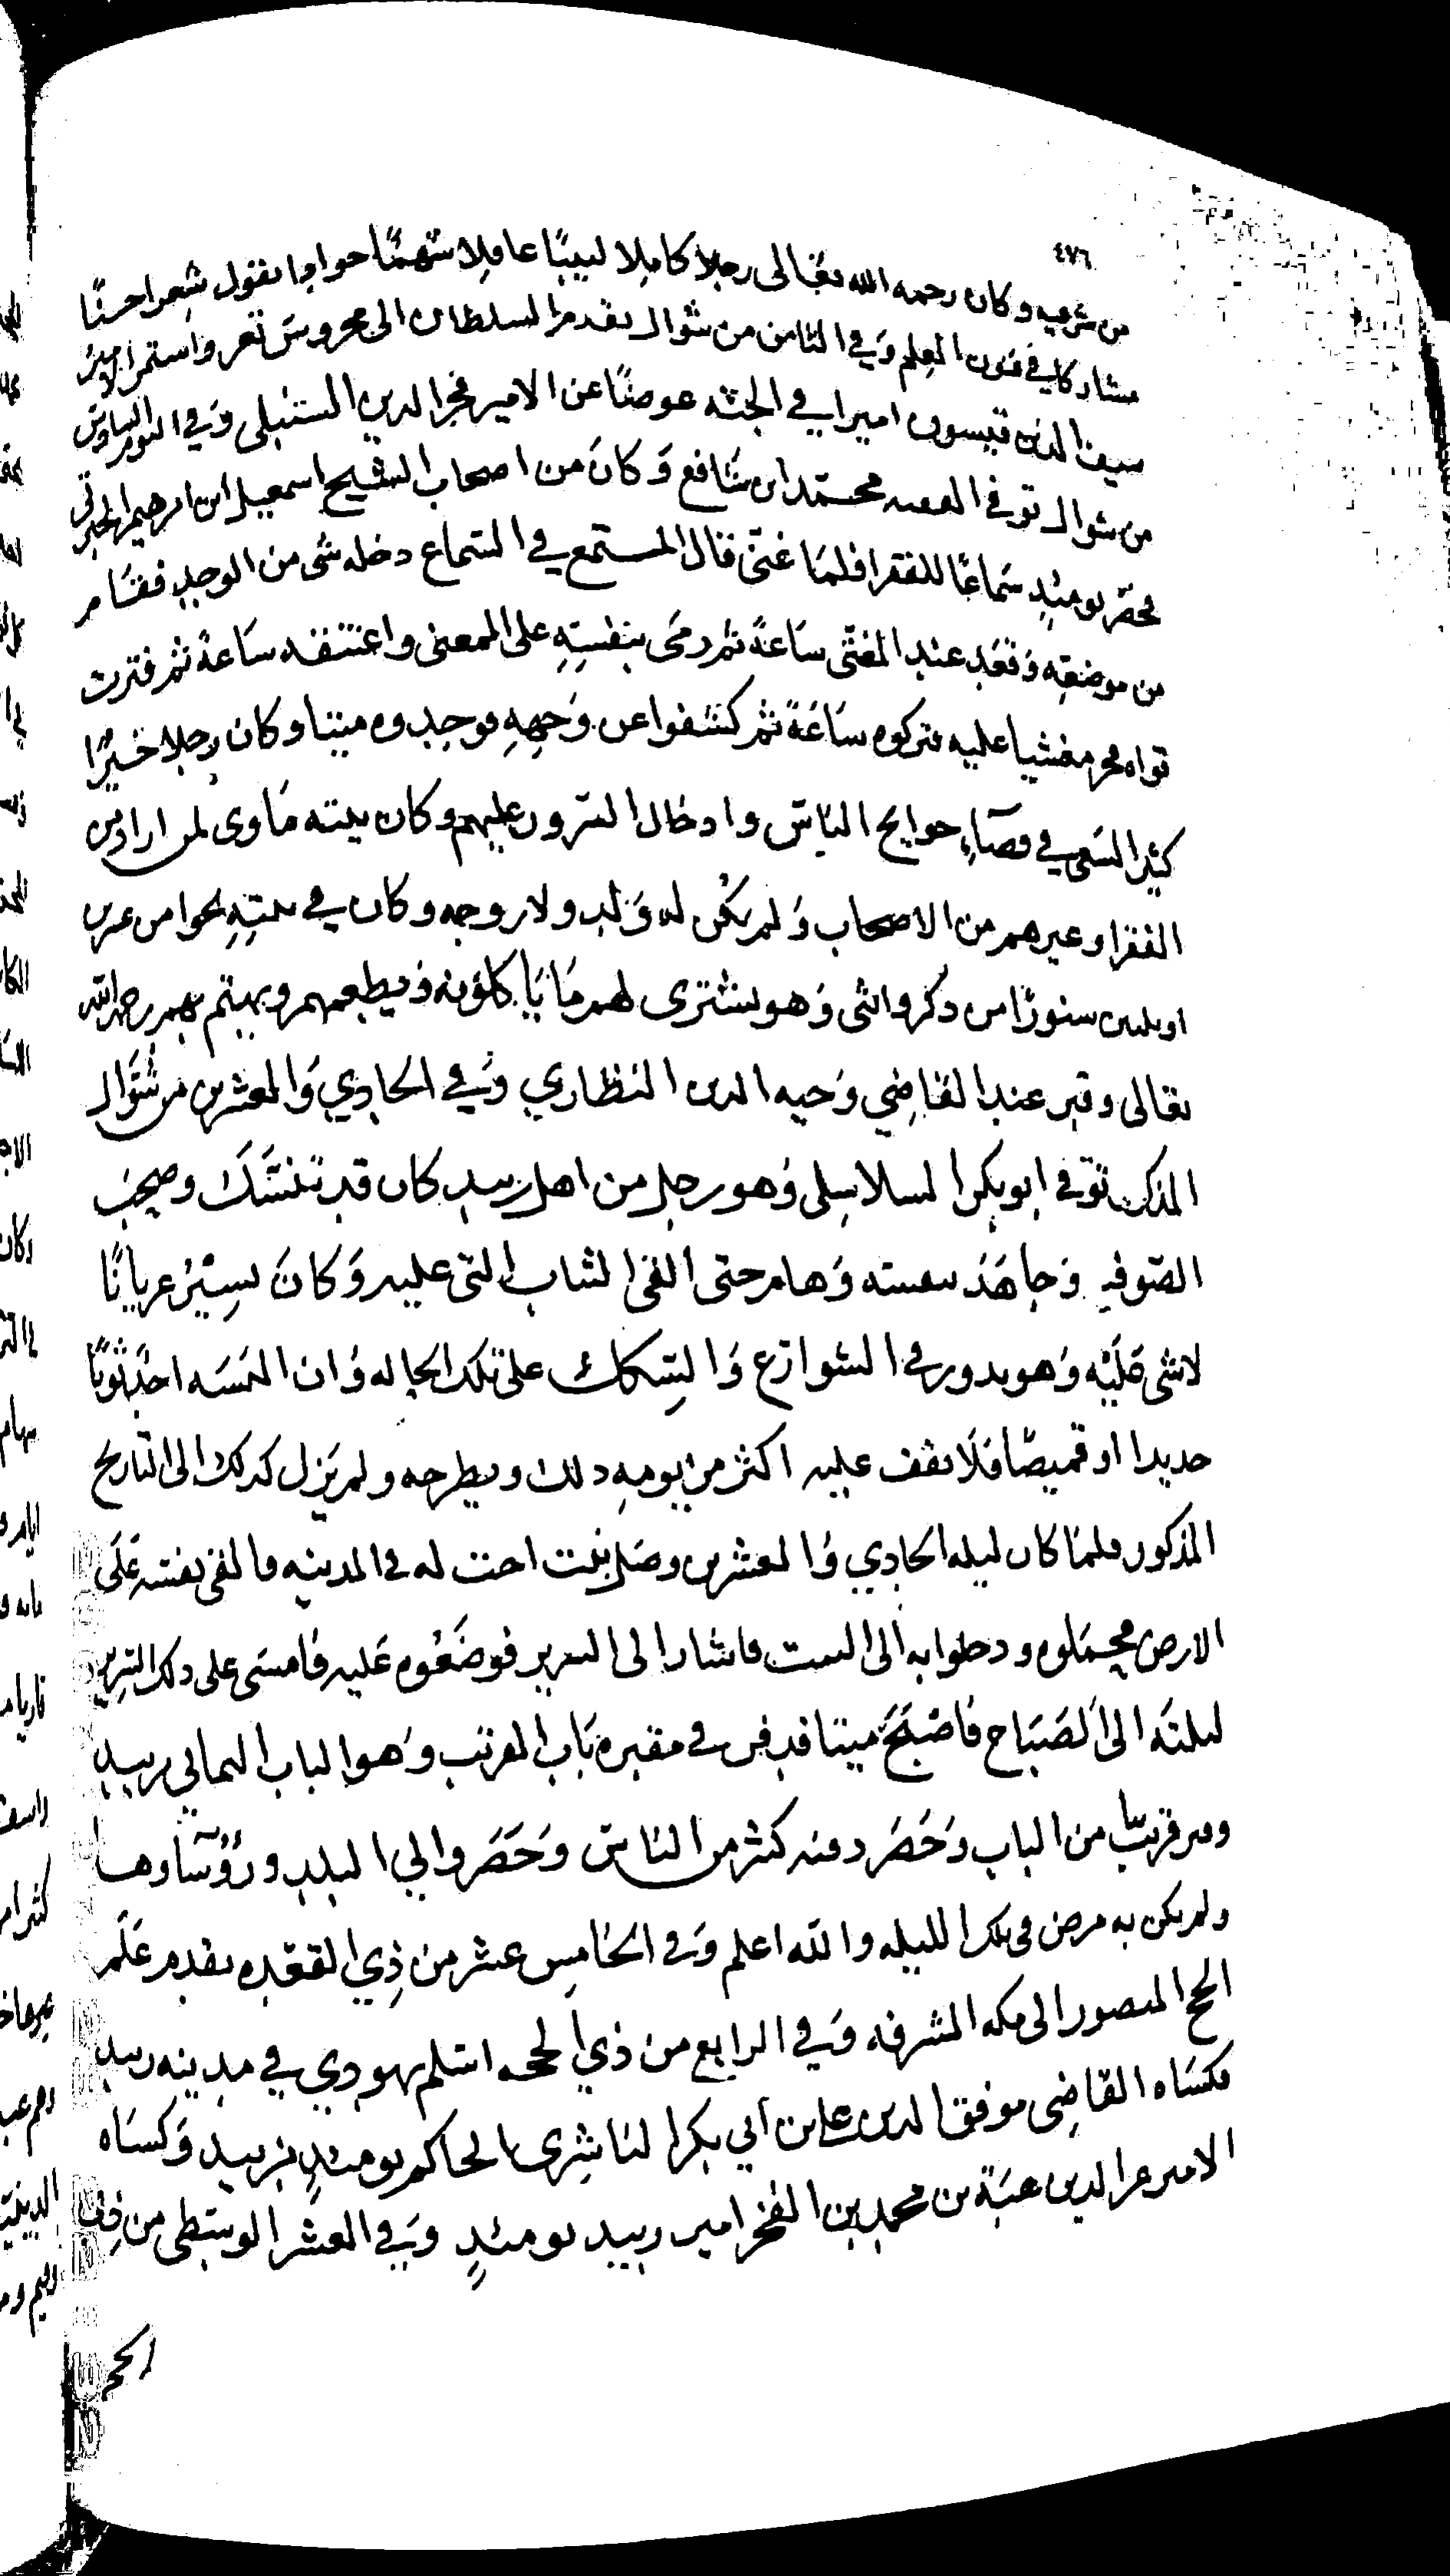 ٤٧٦
من شرعيه وكان رحمه الله تعالى رجلا كاملا لبيبًا عاقلا شهمًا جوادا يقول شعرا حسنًا
مشاركا في فنون العلم وَفي الثامن من شوال تقدم السلطان الى محروس تعز واستمر الامير
سيف الدين قيسون اميرا في الجثه عوضًا عن الامير فخر الدين السنبلي وَفي اليوم السادس
من شوال توفي الفقيه محمّد ابن شافع وَكانَ من اصحاب الشيخ اسمعيل ابن ابرهيم الجبرتي
فحضر يومئذٍ سَماعًا للفقرا فلمَا غنّى قال المستمع في السَماع دخله شى من الوجد فقَام
من موضعِه وَقعَد عند المغنّي سَاعةً ثم رمَى بنفسِهِ على المعنى واعتنقه سَاعةً ثم فترت
قواه فخر مغشيا عليه فتركوه سَاعَةً ثم كشفوا عن وَجههِ فوجدوه ميتا وكان رجلا خيّرًا
كثير السَعي في قضَآء حوايج النّاس وادخال السرور عليهم وكان بيته مَاوى لمن اراد من
الفقرا وغيرهم من الاصحاب وَلم يكُن له وَلد ولا زوجه وكان في بيتِهِ نحوا من عشرين
او ثلثين سنورًا من ذكر وانثى وَهو يشترى لهم مَا يَاكلونه وَيطعمهم ويهتم بهم رحمه الله
تعالى وقبر عند القاضِي وَجيه الدين النظاري وَفي الحادي وَالعشرين من شوَال
المذكور توَفي ابو بكر السلاسلي وَهو رجل من اهل زبيد كان قد تنسَّكَ وصحِبَ
الصّوفيه وَجاهَدَ بنفسه وَهام حتى القى الثياب التي عليه وَكانَ يسِيْرُ عريانًا
لا شى عَلَيْه وَهو يدور في الشوارع وَالسِكك على تلك الحاله وَان البسَه احَد ثوبًا
جديدا او قميصًا فلا يقف عليه اكثر من يومهِ ذلك ويطرحه ولم يَزل كذلك الى التاريخ
المذكور فلمَا كان ليله الحادي وَالعشرين وصَل بيْت اخت له في المدينه فالقى نفسَه عَلَى
الارض فحمَلوه ودخلوا به الى البيت فاشار الى السرير فوضَعُوه عَليه فامسَى على ذلك السرير
ليلتَه الى الصَبَاح فاصْبَحَ ميتا فدفن في مقبرة بَاب القرتب وَهو الباب اليماني زبيد
وقبر قريبًا من الباب وَحَضَر دفنه كثر من الناس وَحَضَر والي البلد ورُؤسَاوها
ولم يكن به مرض في تلك الليله والله اعلم وَفى الخامِس عشر من ذِي القعده تقدم عَلَم
الحج المنصور الى مكه المشرفه وَفي الرابع من ذي الحجه اسْلم يهودي في مدينه زبيد
فكسَاه القاضِي موفق الدين علي بن ابي بكر الناشِرى الحاكم يومئذٍ بزبيد وَكسَاه
الامير عز الدين هبَة بن محمد بن الفخر امير زبيد يومئذٍ وَفي العشر الوسَطى من ذِي
الحجه